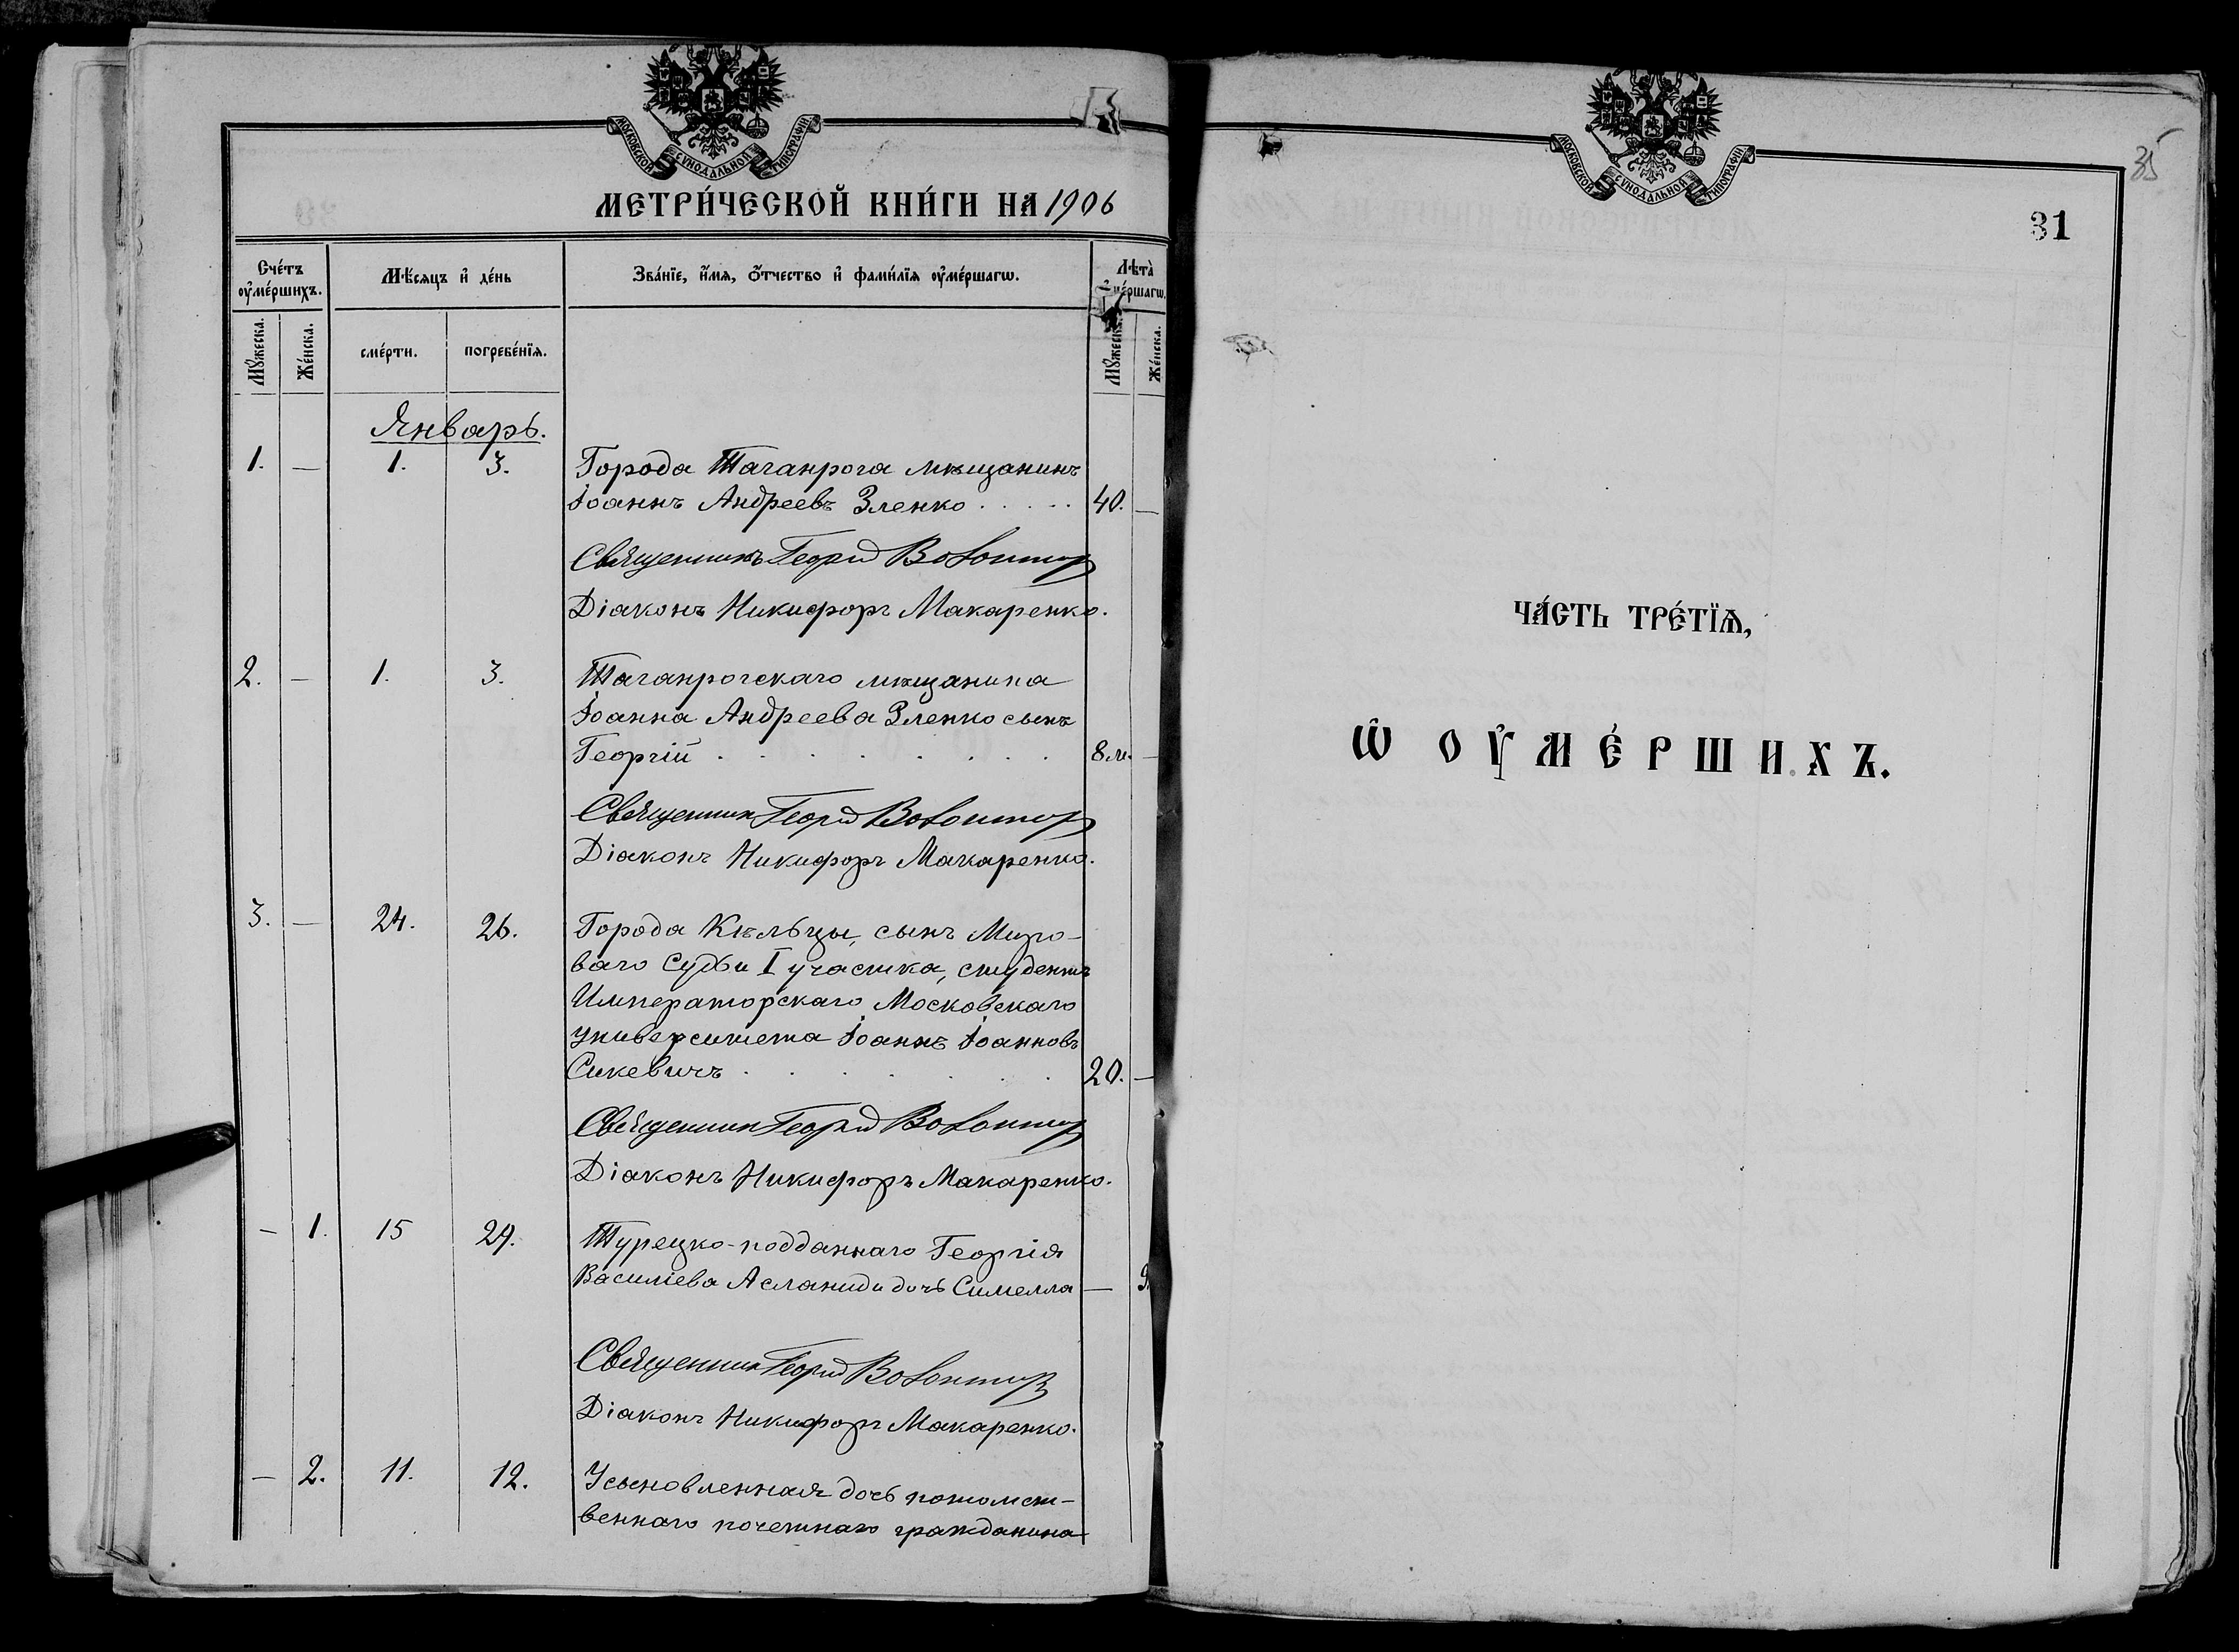 МОСКОВСКОЙ СѴНОДАЛЬНОЙ ТИПОГРАФІИ
МЕТРИ́ЧЕСКОЙ КНИ́ГИ НА 1906
Сче́тъ оу҆ме́ршихъ.
Мѣ́сяцъ и҆ де́нь
Зва́нїе, и҆́мя, ѻ҆́тчество и҆ фами́лїя оу҆ме́ршагѡ.
Лѣта̀ оу҆ме́ршагѡ.
Мꙋ́жеска.
Же́нска.
сме́рти.
погребе́нїя.
Мꙋ́жеска.
Же́нска.
Январь.
1. — 1. 3. Города Таганрога мѣщанинъ
Іоаннъ Андреевъ Зленко . . . . . 40. —
Священникъ Георгій
Діаконъ Никифоръ Макаренко.
2. — 1. 3. Таганрогскаго мѣщанина
Іоанна Андреева Зленко сынъ
Георгій . . . . . . . . 8 м. —
Священник Георгій
Діаконъ Никифоръ Макаренко.
3. — 24. 26. Города Кѣльцы, сынъ Миро-
ваго Судьи I участка, студентъ
Императорскаго Московскаго
университета Іоаннъ Іоанновъ
Сикевичъ . . . . . . . 20. —
Священник Георгій
Діаконъ Никифоръ Макаренко.
— 1. 15 29. Турецко-подданнаго Георгія
Василіева Асланиди дочь Симелла —
Священник Георгій
Діаконъ Никифоръ Макаренко.
— 2. 11. 12. Усыновленная дочь потомст-
веннаго почетнаго гражданина
МОСКОВСКОЙ СѴНОДАЛЬНОЙ ТИПОГРАФІИ
35
31
ЧА́СТЬ ТРЕ́ТЇѦ,
Ѽ ОУ҆МЕ́РШИХЪ.